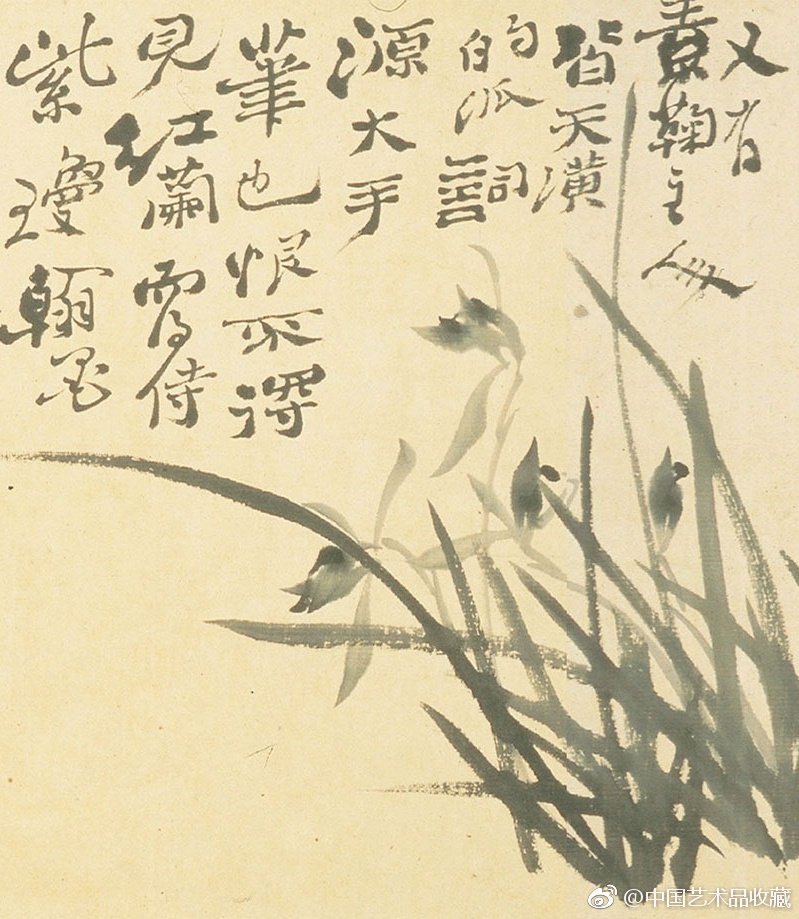 又有
素鞠主人
皆天潢
的派詞
源大手
筆也恨不得
見紅蘭而乃侍
紫瓊翰墨
@中国艺术品收藏